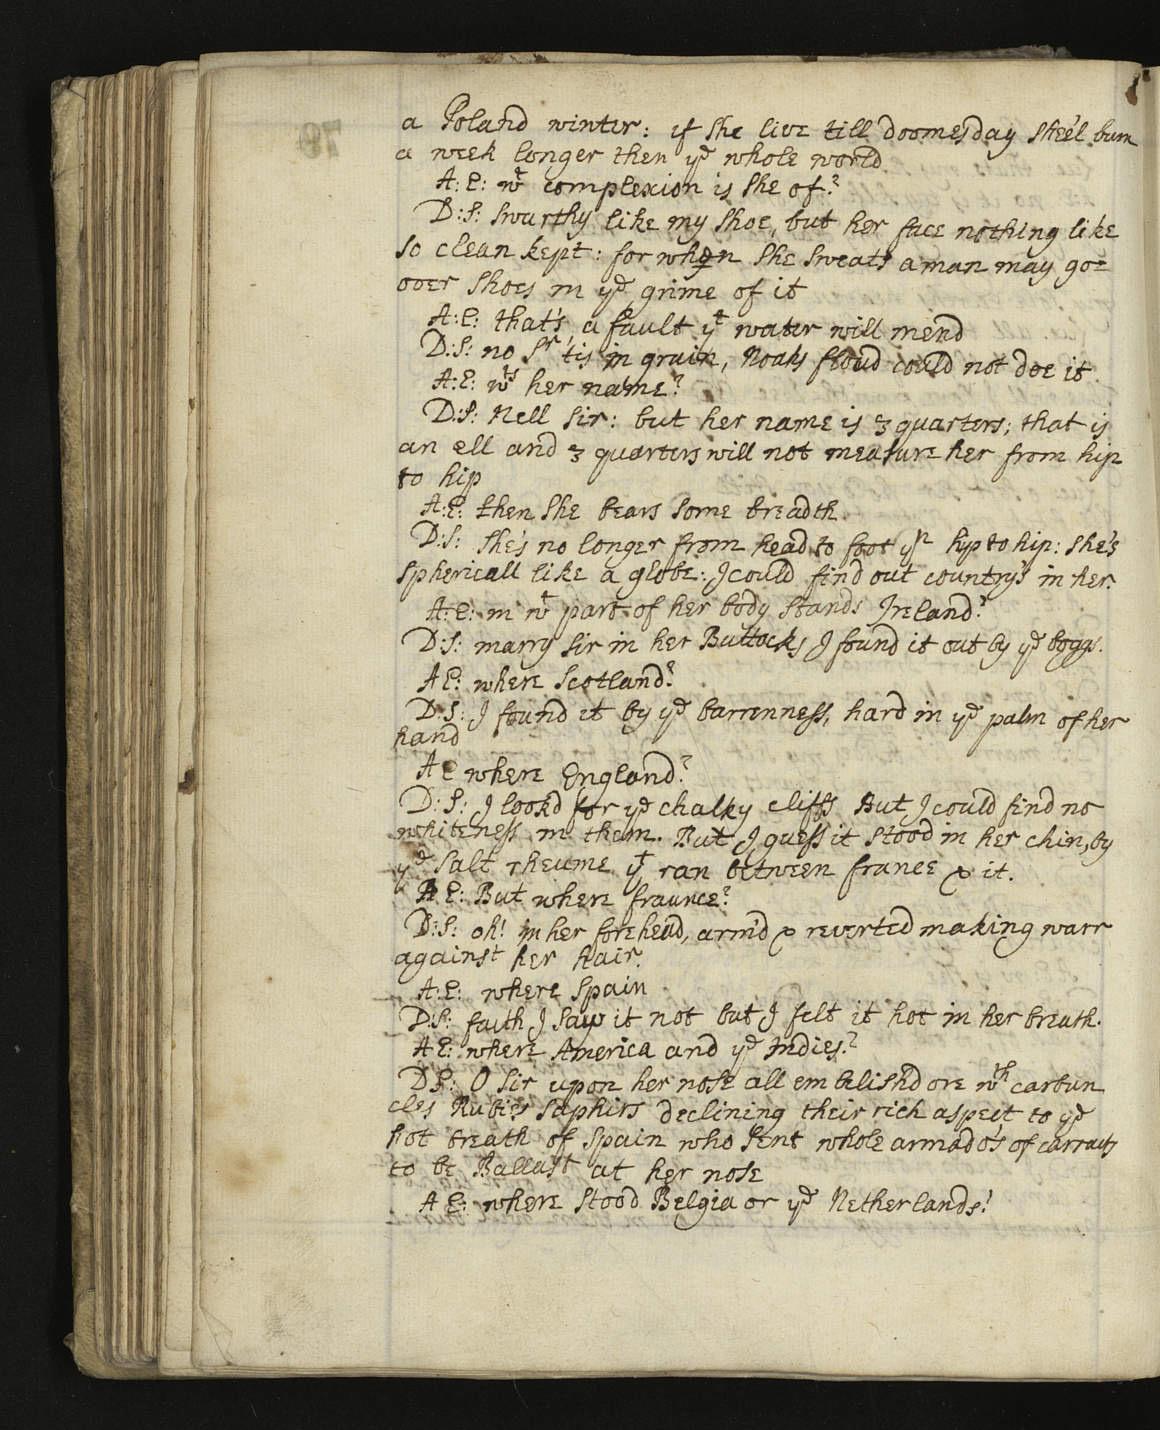 a Poland winter: if she live till doomesday shee'l burn
a week longer then ye whole world
A: E: wt complexion is she of?
D: S: swarthy like my shoe, but her face nothing like
so clean kept: for when she sweats a man may goe
over shoes in ye grime of it
A: E: that's a fault yt water will mend
D: S: no Sr 'tis in grain, Noahs floud could not doe it
A: E: wts her name?
D: S: Nell sir: but her name is 3 quarters; that is
an ell and 3 quarters will not measure her from hip
to hip
A: E: then she bears some breadth
D: S: she's no longer from head to foot yn hip to hip: she's
sphericall like a globe: I could find out country's in her.
A: E: in wt part of her body stands Ireland?
D: S: marry sir in her Buttocks I found it out by ye boggs.
A E: where Scotland?
D: S: I found it by ye barrenness, hard in ye palm of her
hand
A E where England?
D: S: I look'd for ye chalky cliffs But I could find no
whiteness in them. But I guess it stood in her chin, by
ye salt rheume yt ran between france & it.
A E: But where fraunce?
D: S: oh! in her forehead, arm'd & reverted making warr
against her hair.
A: E: where Spain
D: S: faith I saw it not but I felt it hot in her breath.
A E: where America and ye Indies?
D S: O sir upon her nose all embelish'd ore wth carbun
cles Rubies saphirs declining their rich aspect to ye
hot breath of Spain who sent whole armado's of carracts
to be Ballast at her nose
A E: where stood Belgia or ye Netherlands?